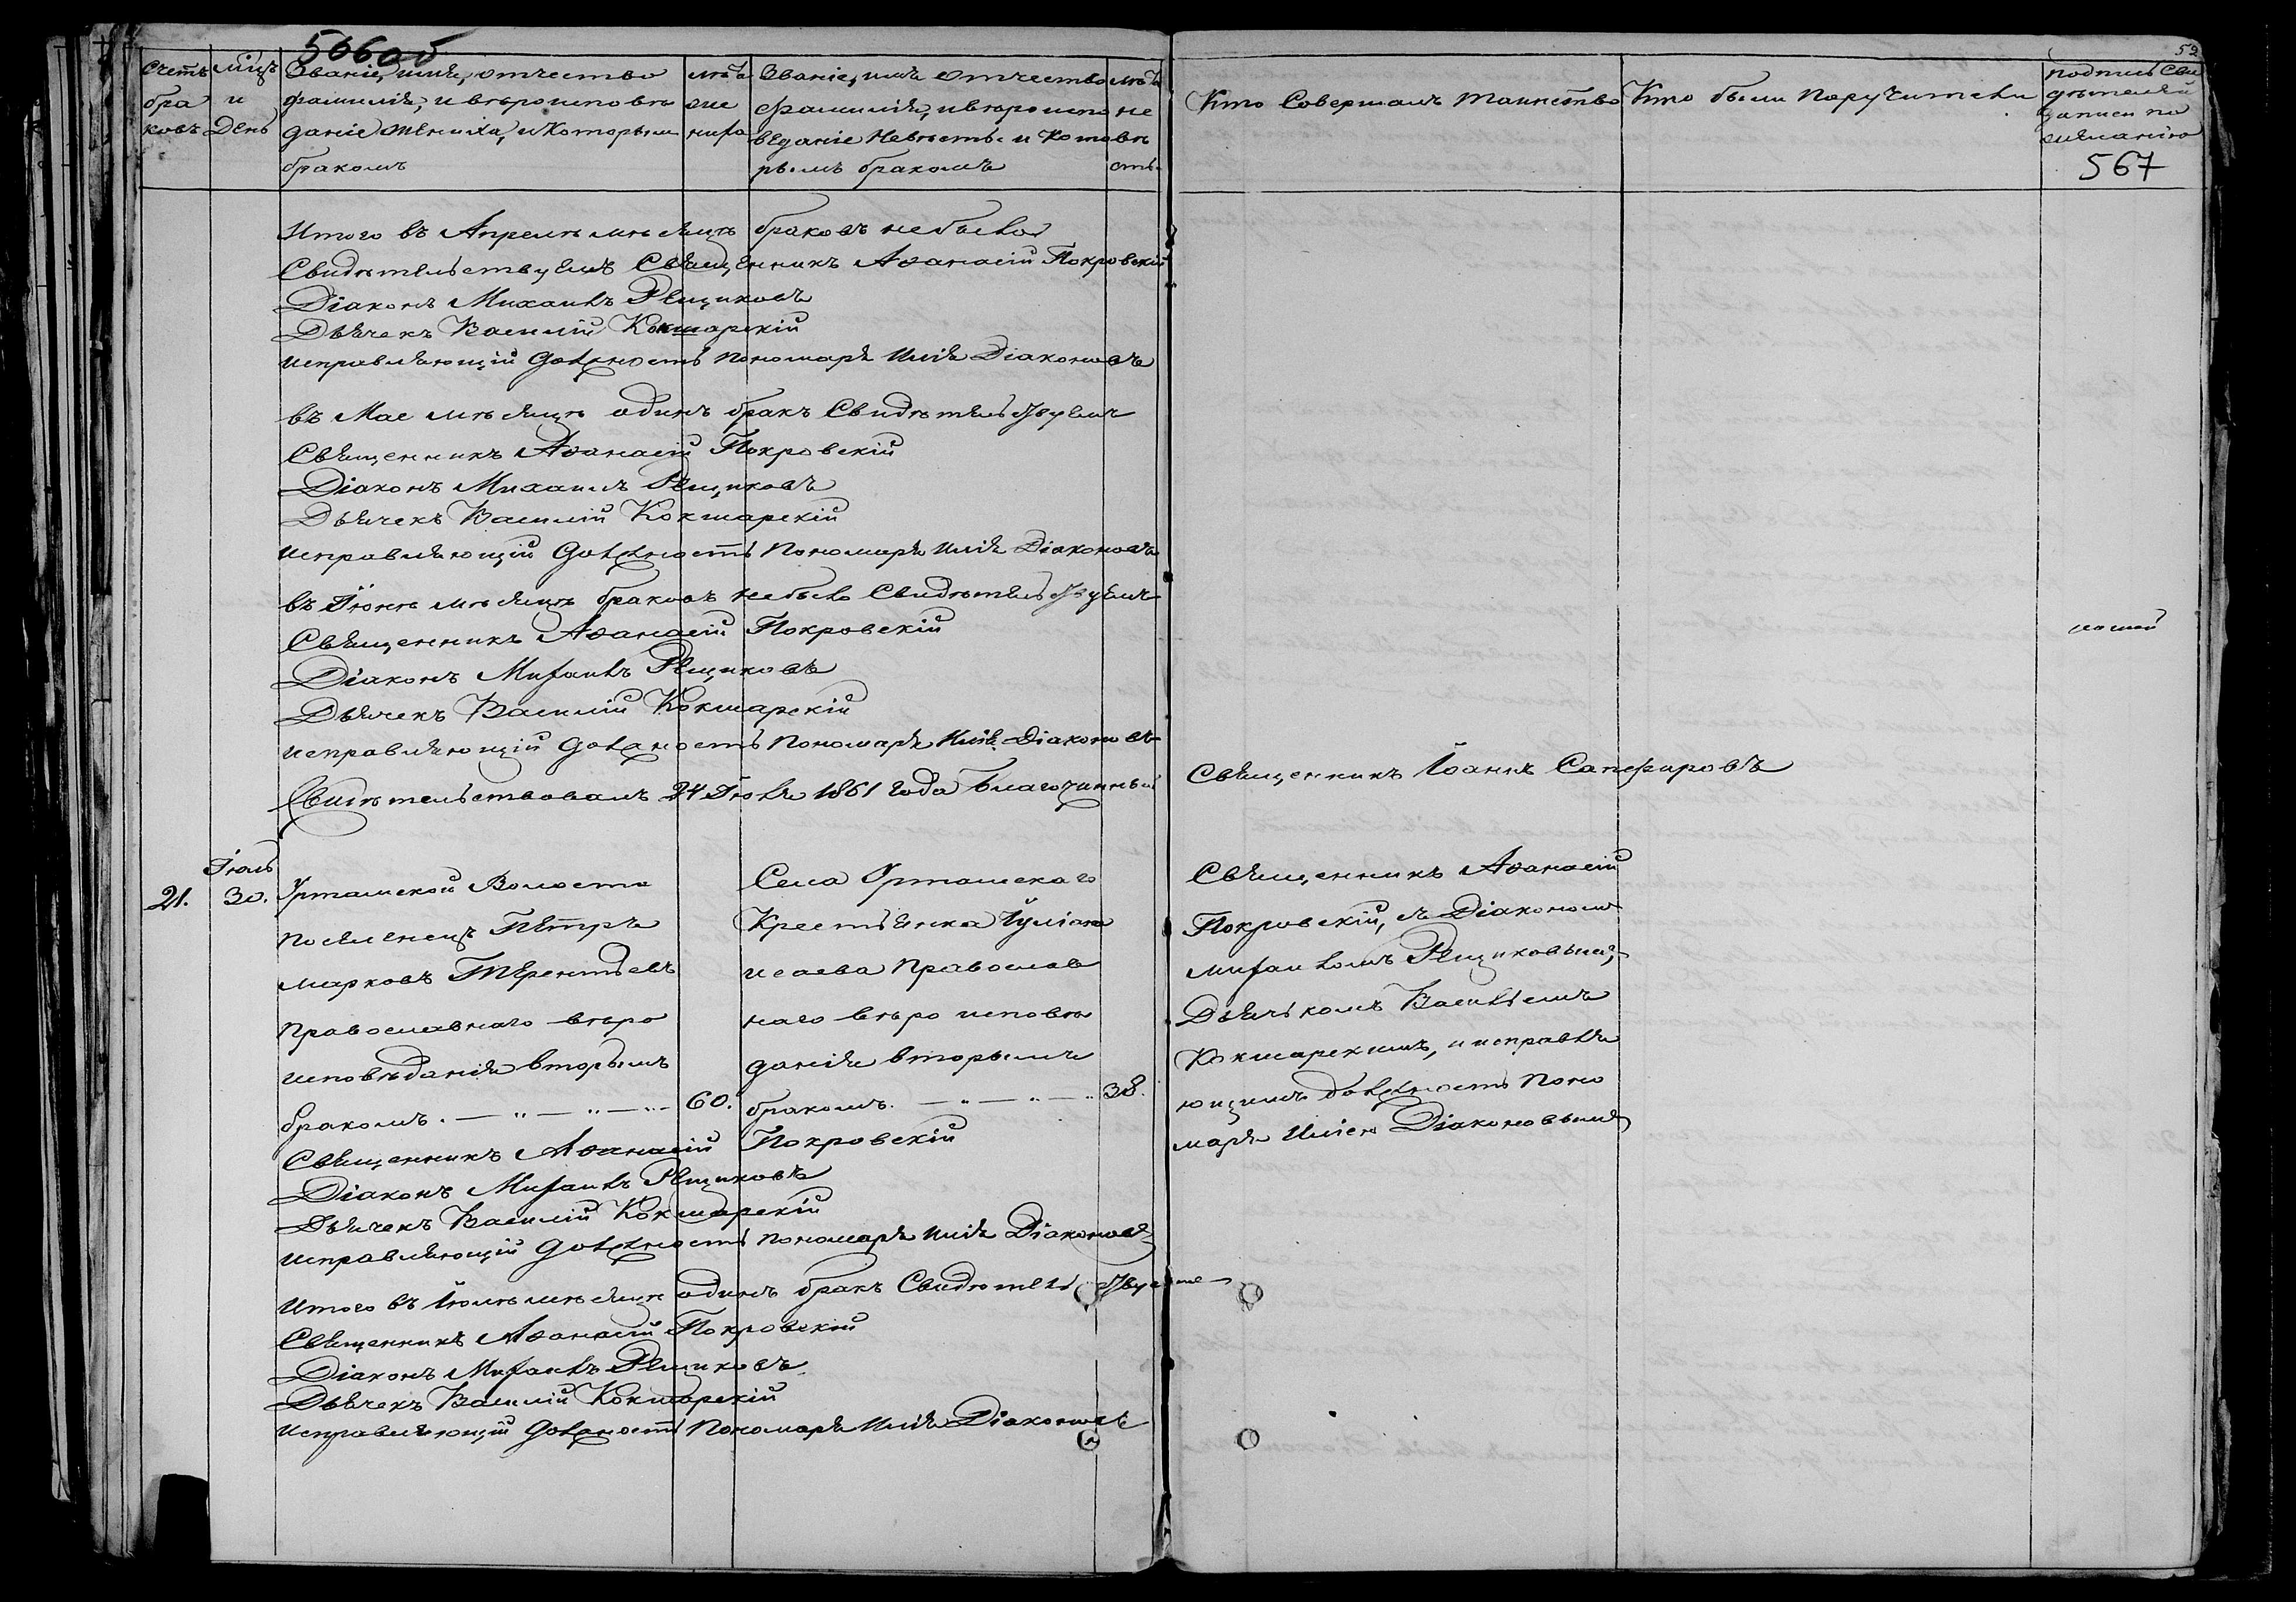 566об
52
Счетъ бра ковъ
Мцъ и День
Званіе, имя, отчество
фамилія, и вѣроисповѣ
даніе жениха, и которым
бракомъ
лѣта
же
ниха
Званіе, имя отчество
фамилія, и вѣроиспо
веданіе Невѣсты и кото
рымъ бракомъ
лѣта
не
вѣ
сты
Кто Совершалъ таинство
Кто были Поручители
подпись Сви
дѣтелей
записи по
желанію
567
Итого въ Апрелѣ мѣсяцѣ браковъ небыло
Свидѣтельствуемъ Священникъ Аѳанасій Покровскій
Діаконъ Михаилъ Рещиковъ
Дьячекъ Василій Кокшарскій
исправляющій должность пономаря Илія Діаконовъ
въ Мае мѣсяцѣ одинъ бракъ Свидѣтельствуемъ
Священникъ Аѳанасій Покровскій
Діаконъ Михаилъ Рещиковъ
Дьячекъ Василій Кокшарскій
исправляющій должность Пономаря Илія Діаконовъ
въ Іюнѣ мѣсяцѣ браковъ небыло Свидѣтельствуемъ
Священникъ Аѳанасій Покровскій
Діаконъ Михаилъ Рещиковъ
Дьячекъ Василій Кокшарскій
исправляющій должность Пономаря Илія Діаконовъ
Свидѣтельствовалъ 24 Іюля 1861 года Благочинный Священникъ Іоаннъ Сапфировъ
21.
Іюль
30.
Уртамской Волости
поселенецъ Петръ
Марковъ Терентьевъ
Православнаго вѣро
исповѣданія вторымъ
бракомъ.
60.
Села Уртамскаго
Крестьянка Іуліана
исаева Православ
наго вѣро исповѣ
данія вторымъ
бракомъ.
38.
Священникъ Аѳанасій
Покровскій, съ Діакономъ
Михаиломъ Рещиковымъ,
Дьячькомъ Васильемъ
Кокшарскимъ, и исправля
ющимъ должность Поно
маря Иліею Діаконовымъ
Священникъ Аѳанасій Покровскій
Діаконъ Михаилъ Рещиковъ
Дьячекъ Василій Кокшарскій
исправляющій должность пономаря Илія Діаконовъ
Итого въ Іюлѣ мѣсяцѣ одинъ бракъ Свидѣтельствуемъ
Священникъ Аѳанасій Покровскій
Діаконъ Михаилъ Рещиковъ
Дьячекъ Василій Кокшарскій
исправляющій должность Пономаря Илія Діаконовъ